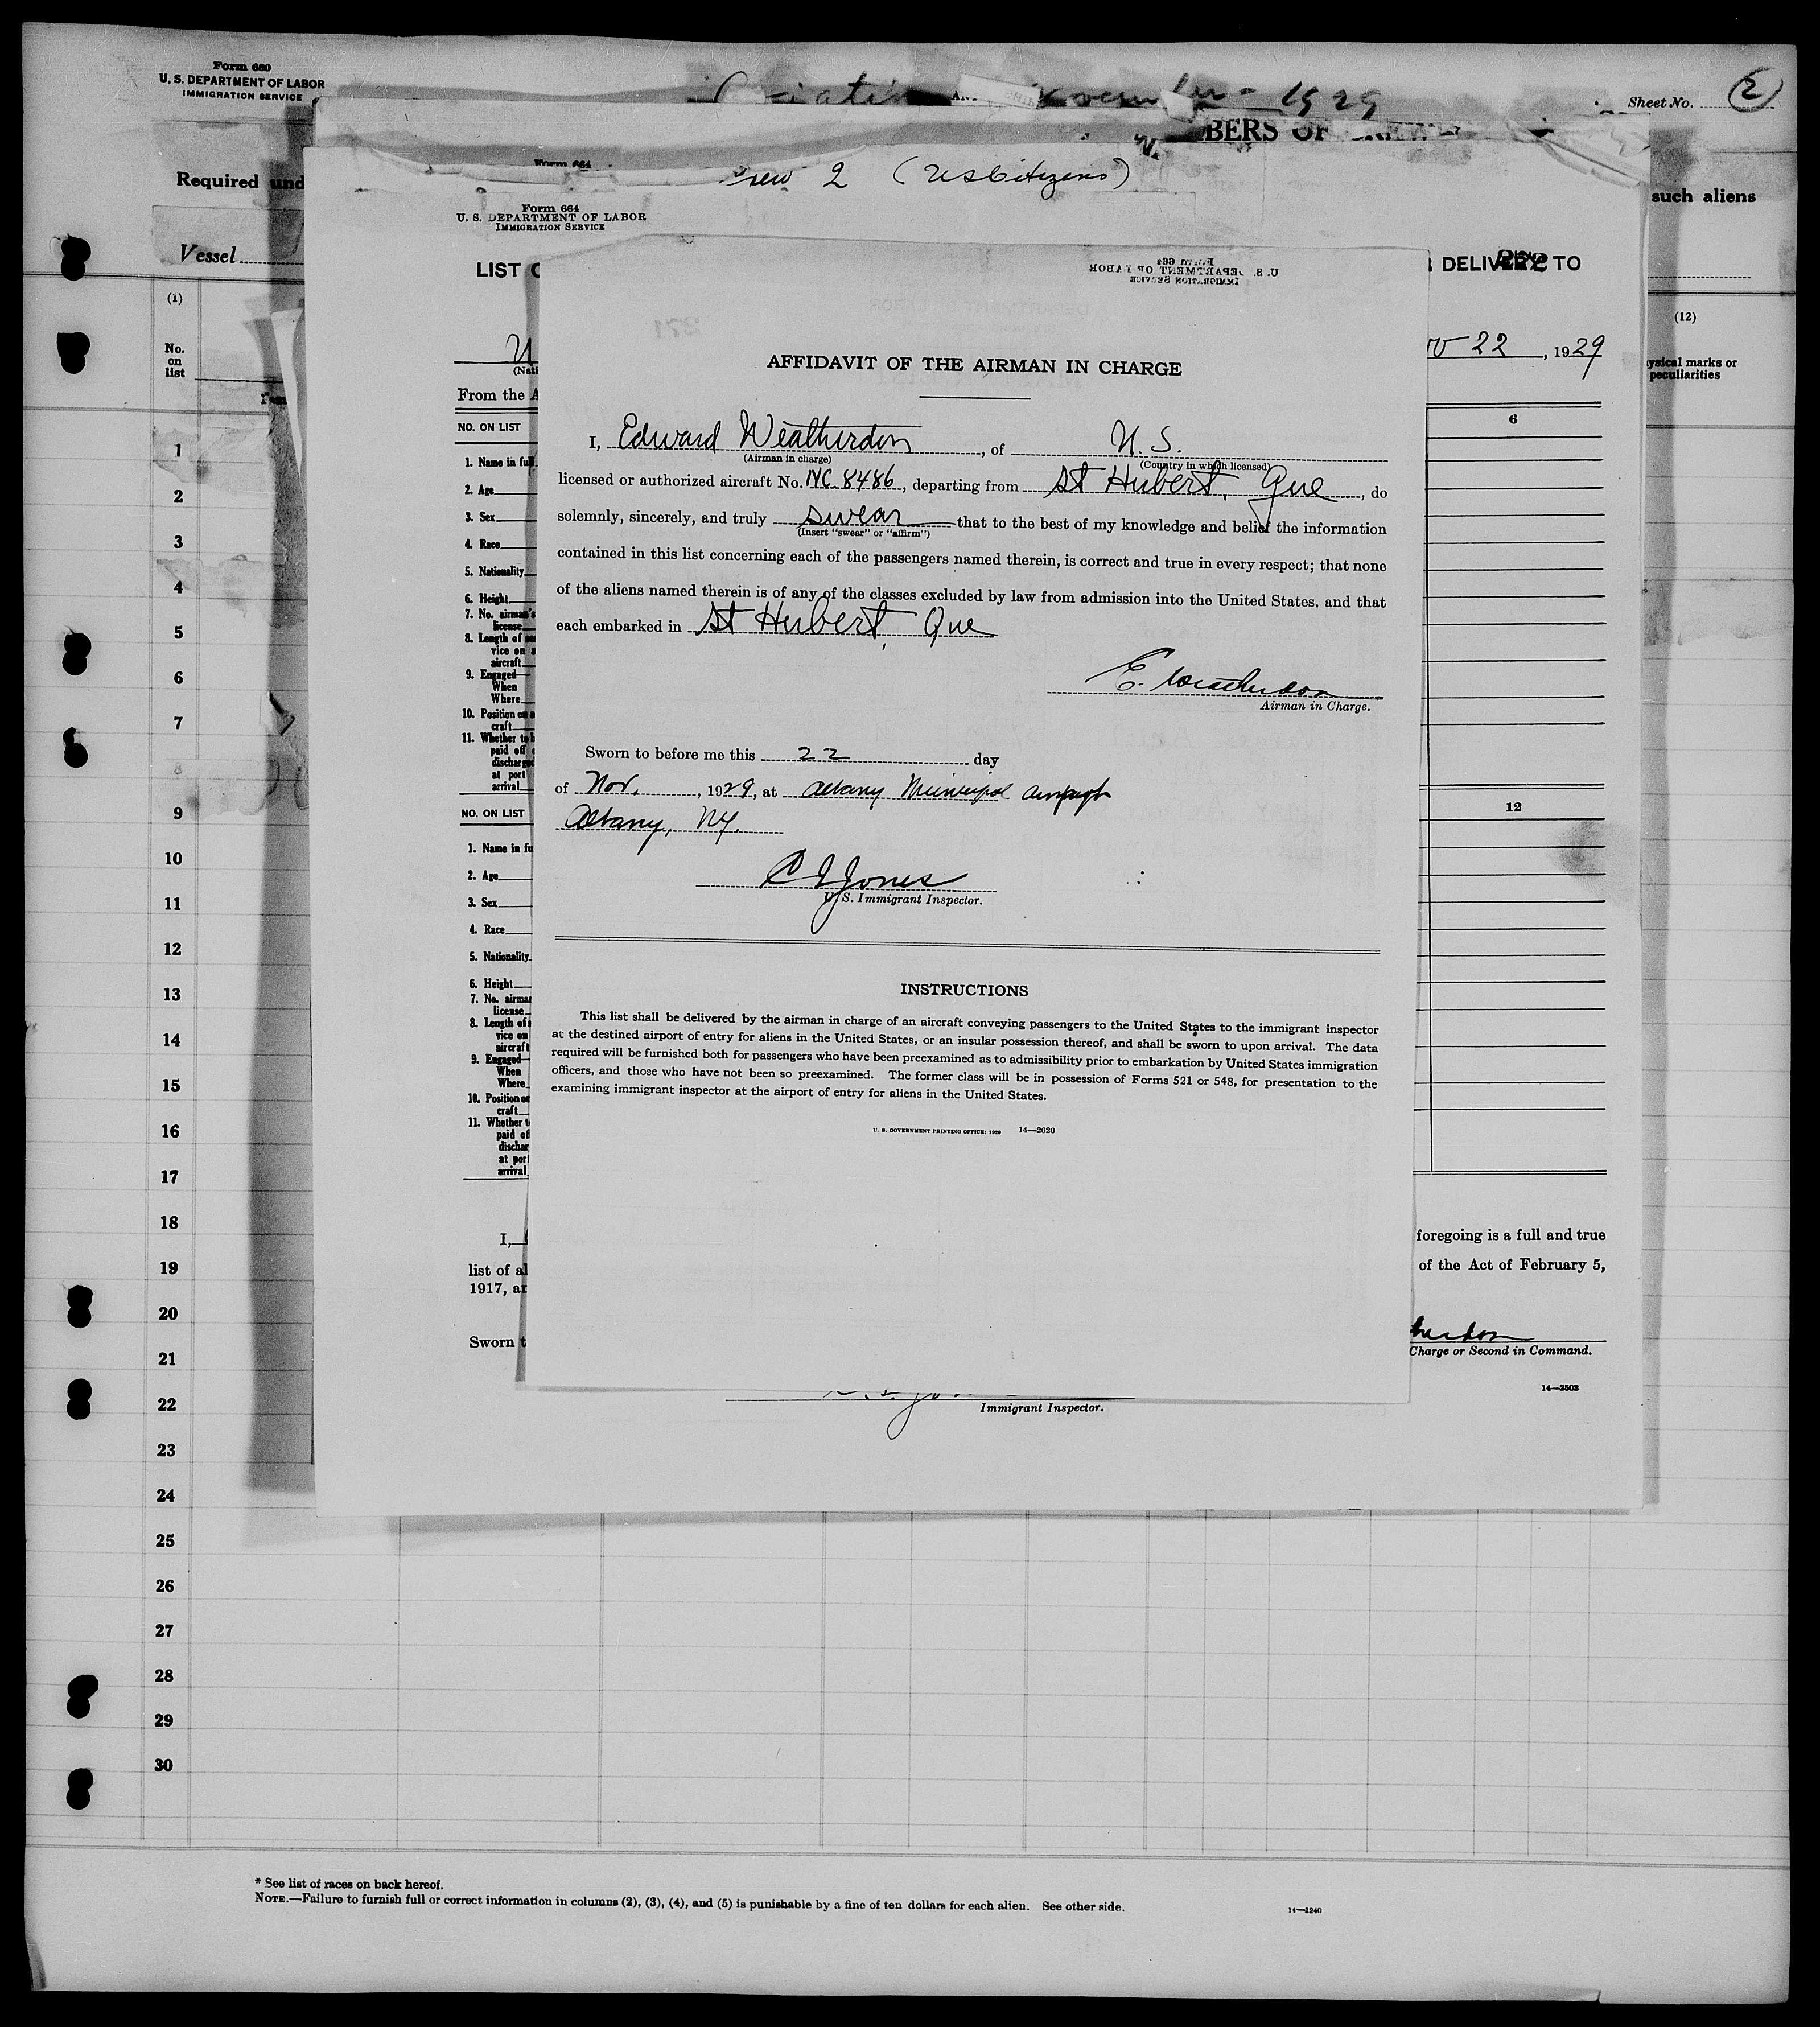 Form 680
U. S. DEPARTMENT OF LABOR
IMMIGRATION SERVICE
1929
Sheet No. 2
BERS OF
Required und
such aliens
Vessel
(1)
No.
on
list
(12)
ysical marks or
peculiarities
Form 664
2 (US Citizens)
Form 664
U. S. DEPARTMENT OF LABOR
IMMIGRATION SERVICE
LIST
DELIVERY TO
22, 1929
From the A
NO. ON LIST
6
1. Name in full
2. Age
3. Sex
4. Race
5. Nationality
6. Height
7. No. airman's
license
8. Length of ser
vice on a
aircraft
9. Engaged—
When
Where
10. Position on a
craft
11. Whether to b
paid off
discharged
at port
arrival
NO. ON LIST
12
1. Name in fu
2. Age
3. Sex
4. Race
5. Nationality
6. Height
7. No. airman
license
8. Length of s
vice on
aircraft
9. Engaged—
When
Where
10. Position on
craft
11. Whether t
paid of
dischar
at port
arrival
I,
foregoing is a full and true
list of al
of the Act of February 5,
1917, an
Sworn t
Charge or Second in Command.
14—2503
Immigrant Inspector.
Form 669
U. S. DEPARTMENT OF LABOR
IMMIGRATION SERVICE
371
AFFIDAVIT OF THE AIRMAN IN CHARGE
I, Edward Weatherdon, of U. S.
(Airman in charge) (Country in which licensed)
licensed or authorized aircraft No. NC 8486, departing from St Hubert, Que, do
solemnly, sincerely, and truly swear that to the best of my knowledge and belief the information
(Insert "swear" or "affirm")
contained in this list concerning each of the passengers named therein, is correct and true in every respect; that none
of the aliens named therein is of any of the classes excluded by law from admission into the United States, and that
each embarked in St Hubert, Que
E. Weatherdon
Airman in Charge.
Sworn to before me this 22 day
of Nov., 1929, at Albany Municipal Airport
Albany, NY.
C J Jones
U. S. Immigrant Inspector.
INSTRUCTIONS
This list shall be delivered by the airman in charge of an aircraft conveying passengers to the United States to the immigrant inspector
at the destined airport of entry for aliens in the United States, or an insular possession thereof, and shall be sworn to upon arrival. The data
required will be furnished both for passengers who have been preexamined as to admissibility prior to embarkation by United States immigration
officers, and those who have not been so preexamined. The former class will be in possession of Forms 521 or 548, for presentation to the
examining immigrant inspector at the airport of entry for aliens in the United States.
U. S. GOVERNMENT PRINTING OFFICE: 1929 14—2620
1
2
3
4
5
6
7
8
9
10
11
12
13
14
15
16
17
18
19
20
21
22
23
24
25
26
27
28
29
30
* See list of races on back hereof.
NOTE.—Failure to furnish full or correct information in columns (2), (3), (4), and (5) is punishable by a fine of ten dollars for each alien. See other side.
14—1240